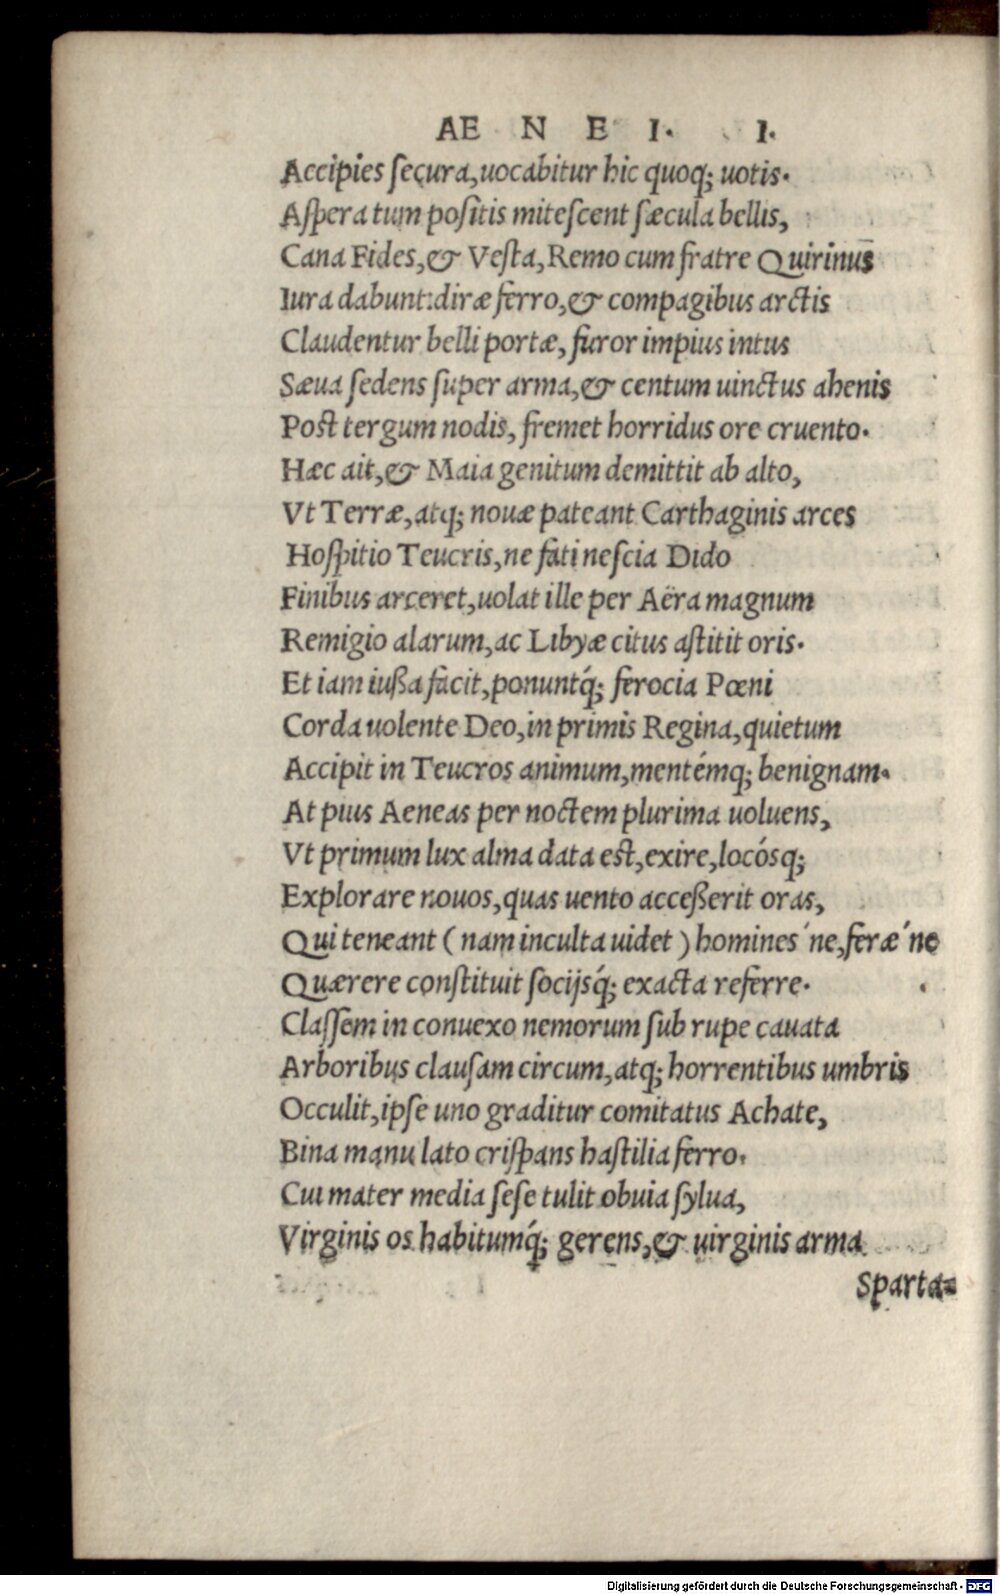 AE N E I. I.
Accipies secura, uocabitur hic quoq; uotis.
Aspera tum positis mitescent sæcula bellis,
Cana Fides, & Vesta, Remo cum fratre Quirinus
Iura dabunt: diræ ferro, & compagibus arctis
Claudentur belli portæ, furor impius intus
Sæua sedens super arma, & centum uinctus ahenis
Post tergum nodis, fremet horridus ore cruento.
Hæc ait, & Maia genitum demittit ab alto,
Vt Terræ, atq; nouæ pateant Carthaginis arces
Hospitio Teucris, ne fati nescia Dido
Finibus arceret, uolat ille per Aëra magnum
Remigio alarum, ac Libyæ citus astitit oris.
Et iam iußa facit, ponuntq́; ferocia Pœni
Corda uolente Deo, in primis Regina, quietum
Accipit in Teucros animum, mentémq; benignam.
At pius Aeneas per noctem plurima uoluens,
Vt primum lux alma data est, exire, locósq;
Explorare nouos, quas uento acceßerit oras,
Qui teneant (nam inculta uidet) homines´ne, feræ´ne
Quærere constituit socijsq́; exacta referre.
Classem in conuexo nemorum sub rupe cauata
Arboribus clausam circum, atq; horrentibus umbris
Occulit, ipse uno graditur comitatus Achate,
Bina manu lato crispans hastilia ferro.
Cui mater media sese tulit obuia sylua,
Virginis os habitumq́; gerens, & uirginis arma
Sparta=
Digitalisierung gefördert durch die Deutsche Forschungsgemeinschaft - DFG